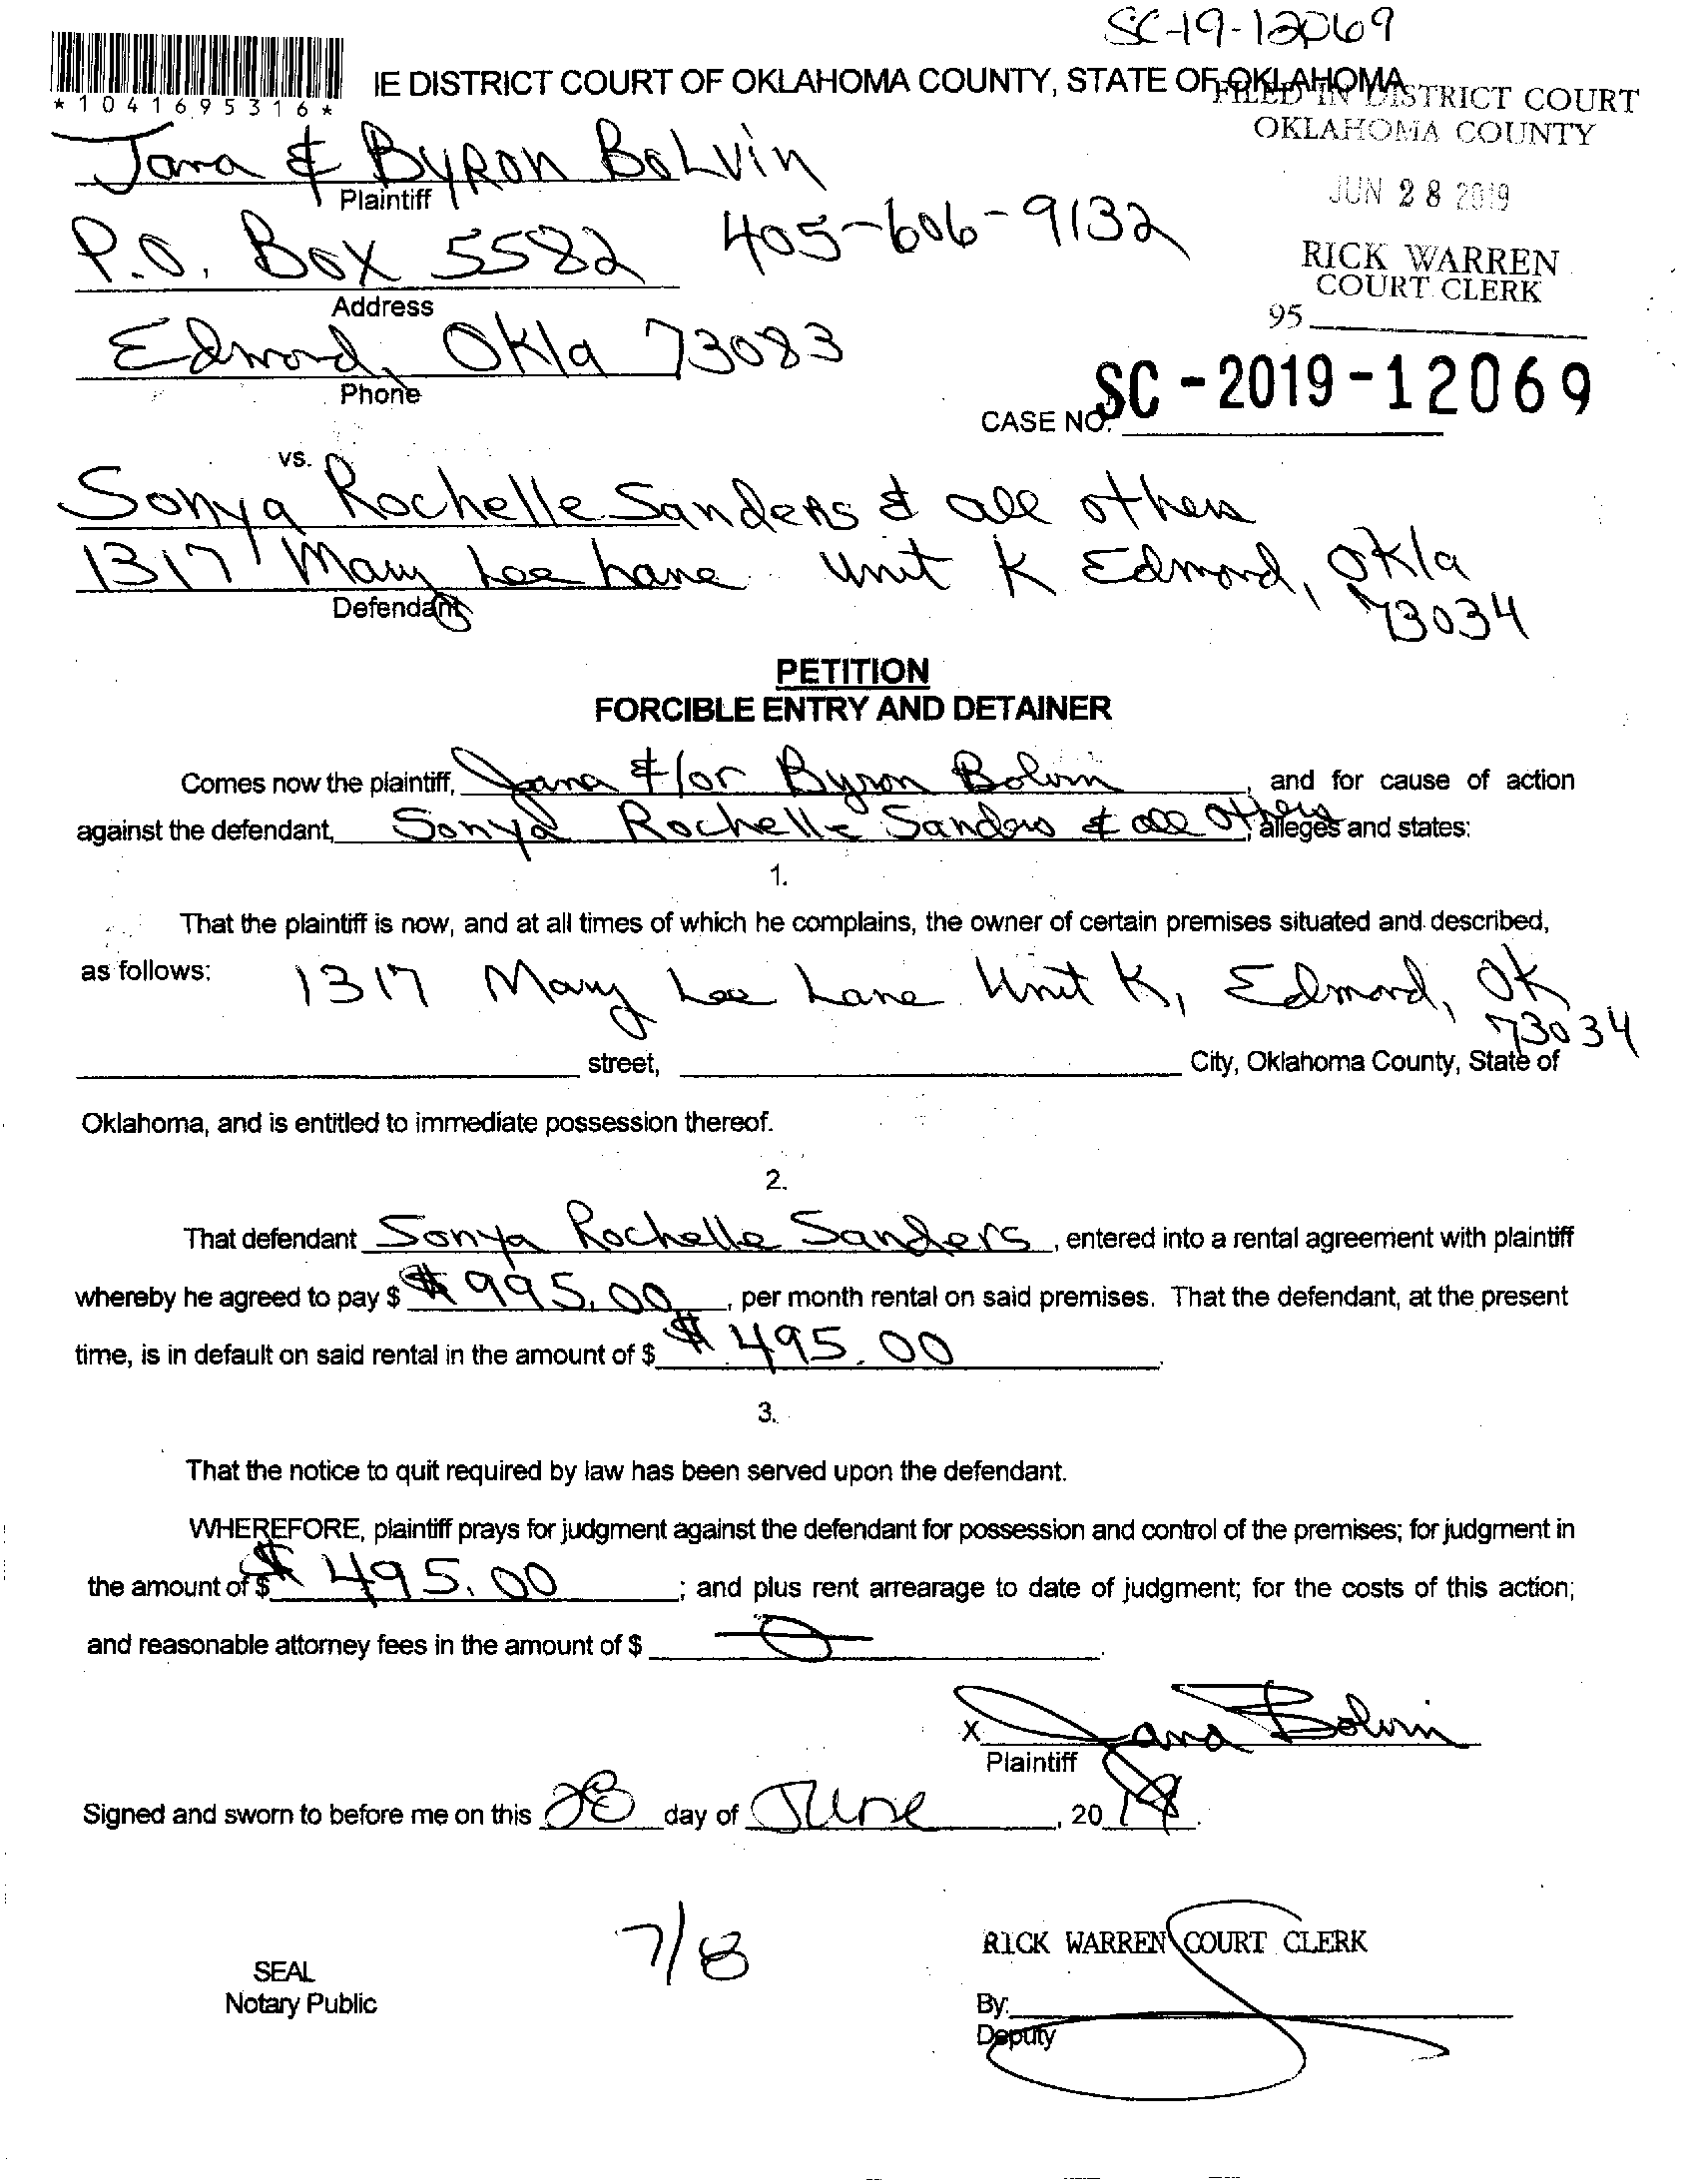 SC-19-12069
IE DISTRICT COURT OF OKLAHOMA COUNTY, STATE OF OKLAHOMA
*1041695316*
FILED IN DISTRICT COURT
OKLAHOMA COUNTY
JUN 28 2019
RICK WARREN
COURT CLERK
95
Jana & Byron Bolvin
Plaintiff
P.O. Box 5582 405-606-9132
Address
Edmond, Okla 73083
Phone
CASE NO. SC-2019-12069
vs.
Sonya Rochelle Sanders & all others
1317 Mary Lee Lane Unit K Edmond, Okla
73034
Defendant
PETITION
FORCIBLE ENTRY AND DETAINER
Comes now the plaintiff, Jana &/or Byron Bolvin, and for cause of action
against the defendant, Sonya Rochelle Sanders & all others, alleges and states:
1.
That the plaintiff is now, and at all times of which he complains, the owner of certain premises situated and described,
as follows: 1317 Mary Lee Lane Unit K, Edmond, OK
73034
street, City, Oklahoma County, State of
Oklahoma, and is entitled to immediate possession thereof.
2.
That defendant Sonya Rochelle Sanders, entered into a rental agreement with plaintiff
whereby he agreed to pay $ $995.00, per month rental on said premises. That the defendant, at the present
time, is in default on said rental in the amount of $ $495.00.
3.
That the notice to quit required by law has been served upon the defendant.
WHEREFORE, plaintiff prays for judgment against the defendant for possession and control of the premises; for judgment in
the amount of $ $495.00; and plus rent arrearage to date of judgment; for the costs of this action;
and reasonable attorney fees in the amount of $ 0.
X Jana Bolvin
Plaintiff
Signed and sworn to before me on this 28 day of June, 2019.
7/8
RICK WARREN COURT CLERK
SEAL
Notary Public
By:
Deputy